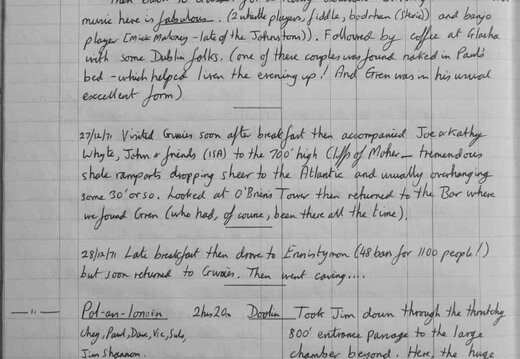 music here is fabulous. (2 whistle players, fiddle, bodhran (Steric)) and banjo
player [Mick Moloney - late of the Johnstons)). Followed by coffee at Glasha
with some Dublin folks. (one of these couples was found naked in Paul's
bed - which helped liven the evening up! And Gren was in his usual
excellent form)
27/12/71 Visited Gussies soon after breakfast then accompanied Joe & Kathy
Whyte, John & friends (ISA) to the 700' high Cliffs of Moher - tremendous
shale ramparts dropping sheer to the Atlantic and usually overhanging
some 30' or so. Looked at O'Briens Tower then returned to the Bar where
we found Gren (who had, of course, been there all the time).
28/12/71 Late breakfast then drove to Ennistymon (48 bars for 1100 people!)
but soon returned to Gussies. Then went caving....
Pol-an-Ionain 2hrs 20m Doolin Took Jim down through the thrutchy
Cheg, Paul, Dave, Vic, Sule, 800' entrance passage to the large
Jim Shannon. chamber beyond. Here, the huge